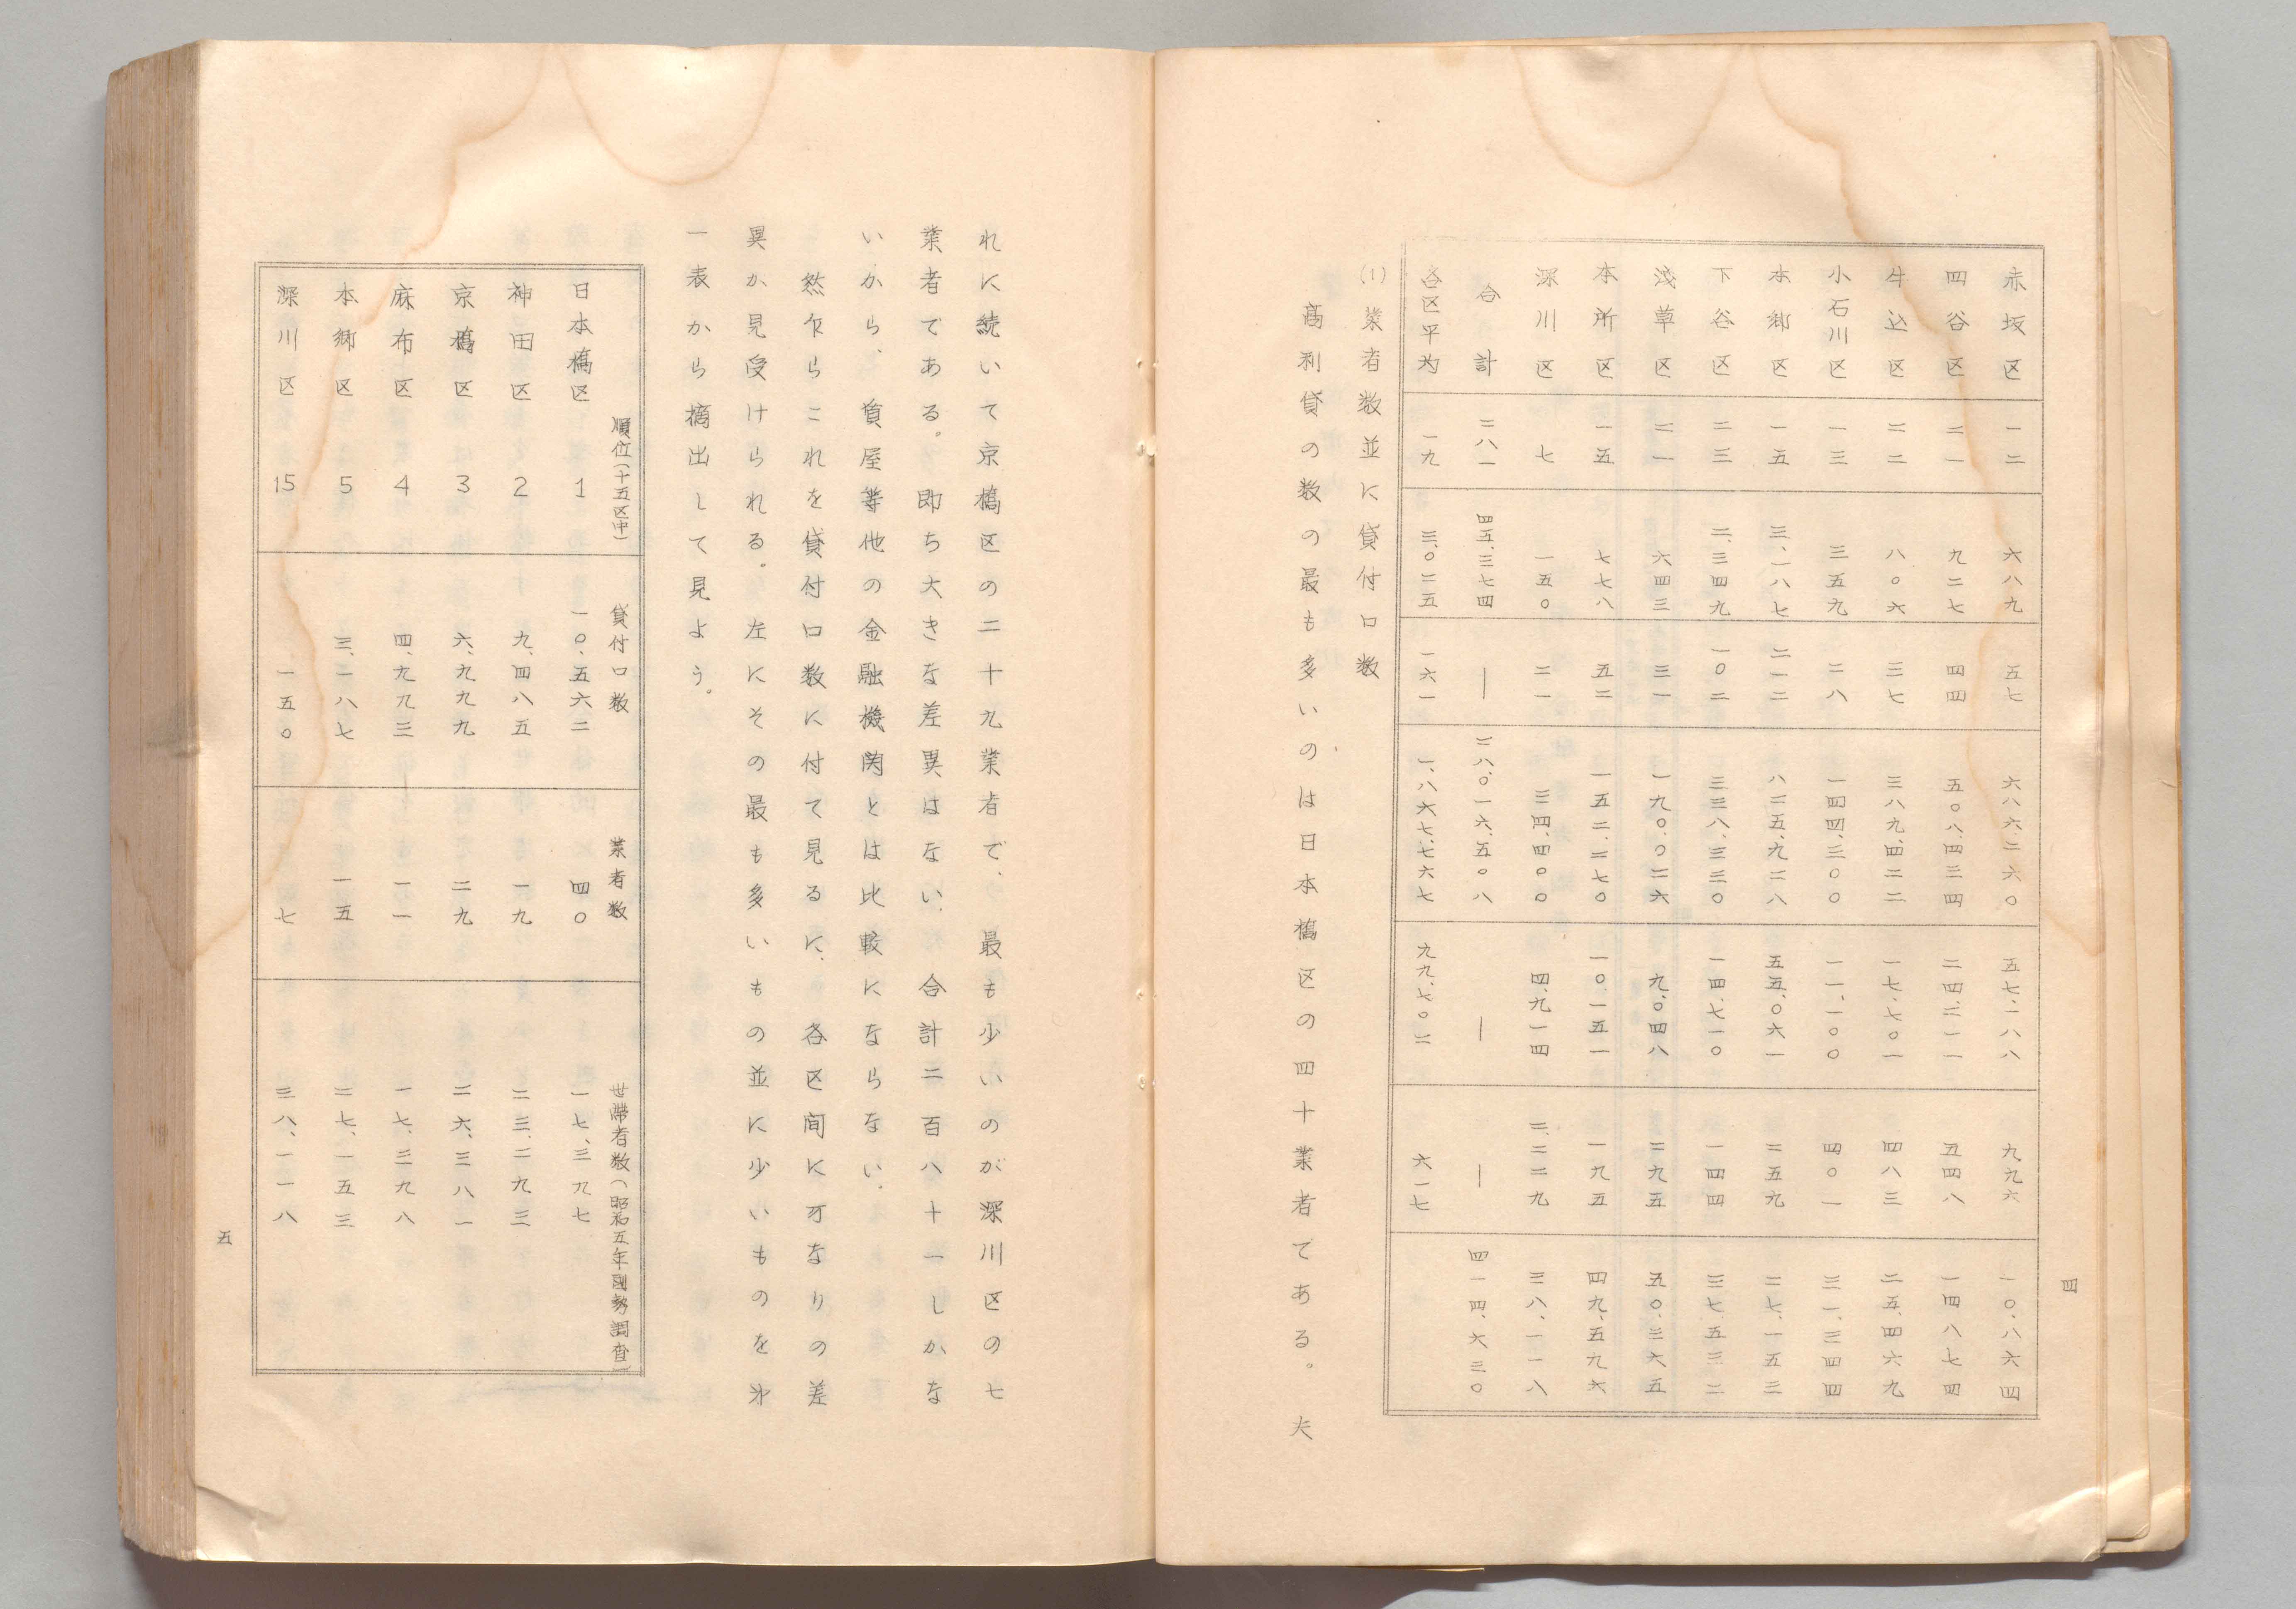 赤坂区 一二 六八九 五七 六八六二六〇 五七、一八八 九九六 一〇、八六四
四谷区 二一 九二七 四四 五〇八、四三四 二四、二一一 五四八 一四八七四
牛込区 二二 八〇六 三七 三八九、四二二 一七、七〇一 四八三 二五、四六九
小石川区 一三 三五九 二八 一四四、三〇〇 一一、一〇〇 四〇一 三一、三四四
本郷区 一五 三、一八七 二一二 八二五、九二八 五五、〇六一 二五九 二七、一五三
下谷区 二三 二、三四九 一〇二 三三八、三三〇 一四、七一〇 一四四 三七、五三二
浅草区 二一 六四三 三一 一九〇、〇二六 九、〇四八 二九五 五〇、三六五
本所区 一五 七七八 五二 一五二、二七〇 一〇、一五一 一九五 四九、五九六
深川区 七 一五〇 二一 三四、四〇〇 四、九一四 二、二二九 三八、一一八
合計 二八一 四五、三七四 ― 二八、〇一六、五〇八 ― ― 四一四、六三〇
各区平均 一九 三、〇二五 一六一 一、八六七、七六七 九九、七〇二 六一七
(1)業者数並に貸付口数
高利貸の数の最も多いのは日本橋区の四十業者である。夫
四
れに続いて京橋区の二十九業者で、最も少いのが深川区の七
業者である。即ち大きな差異はない、合計二百八十一しかな
いから、質屋等他の金融機関とは比較にならない、
然乍らこれを貸付口数に付て見るに、各区間に可なりの差
異か見受けられる。左にその最も多いもの並に少いものを才
一表から摘出して見よう。
順位(十五区中) 貸付口数 業者数 世帯者数(昭和五年国勢調査)
日本橋区 1 一〇、五六二 四〇 一七、三九七
神田区 2 九、四八五 一九 二三、二九三
京橋区 3 六、九九九 二九 二六、三八一
麻布区 4 四、九九三 一一 一七、三九八
本郷区 5 三、一八七 一五 二七、一五三
深川区 15 一五〇 七 三八、一一八
五